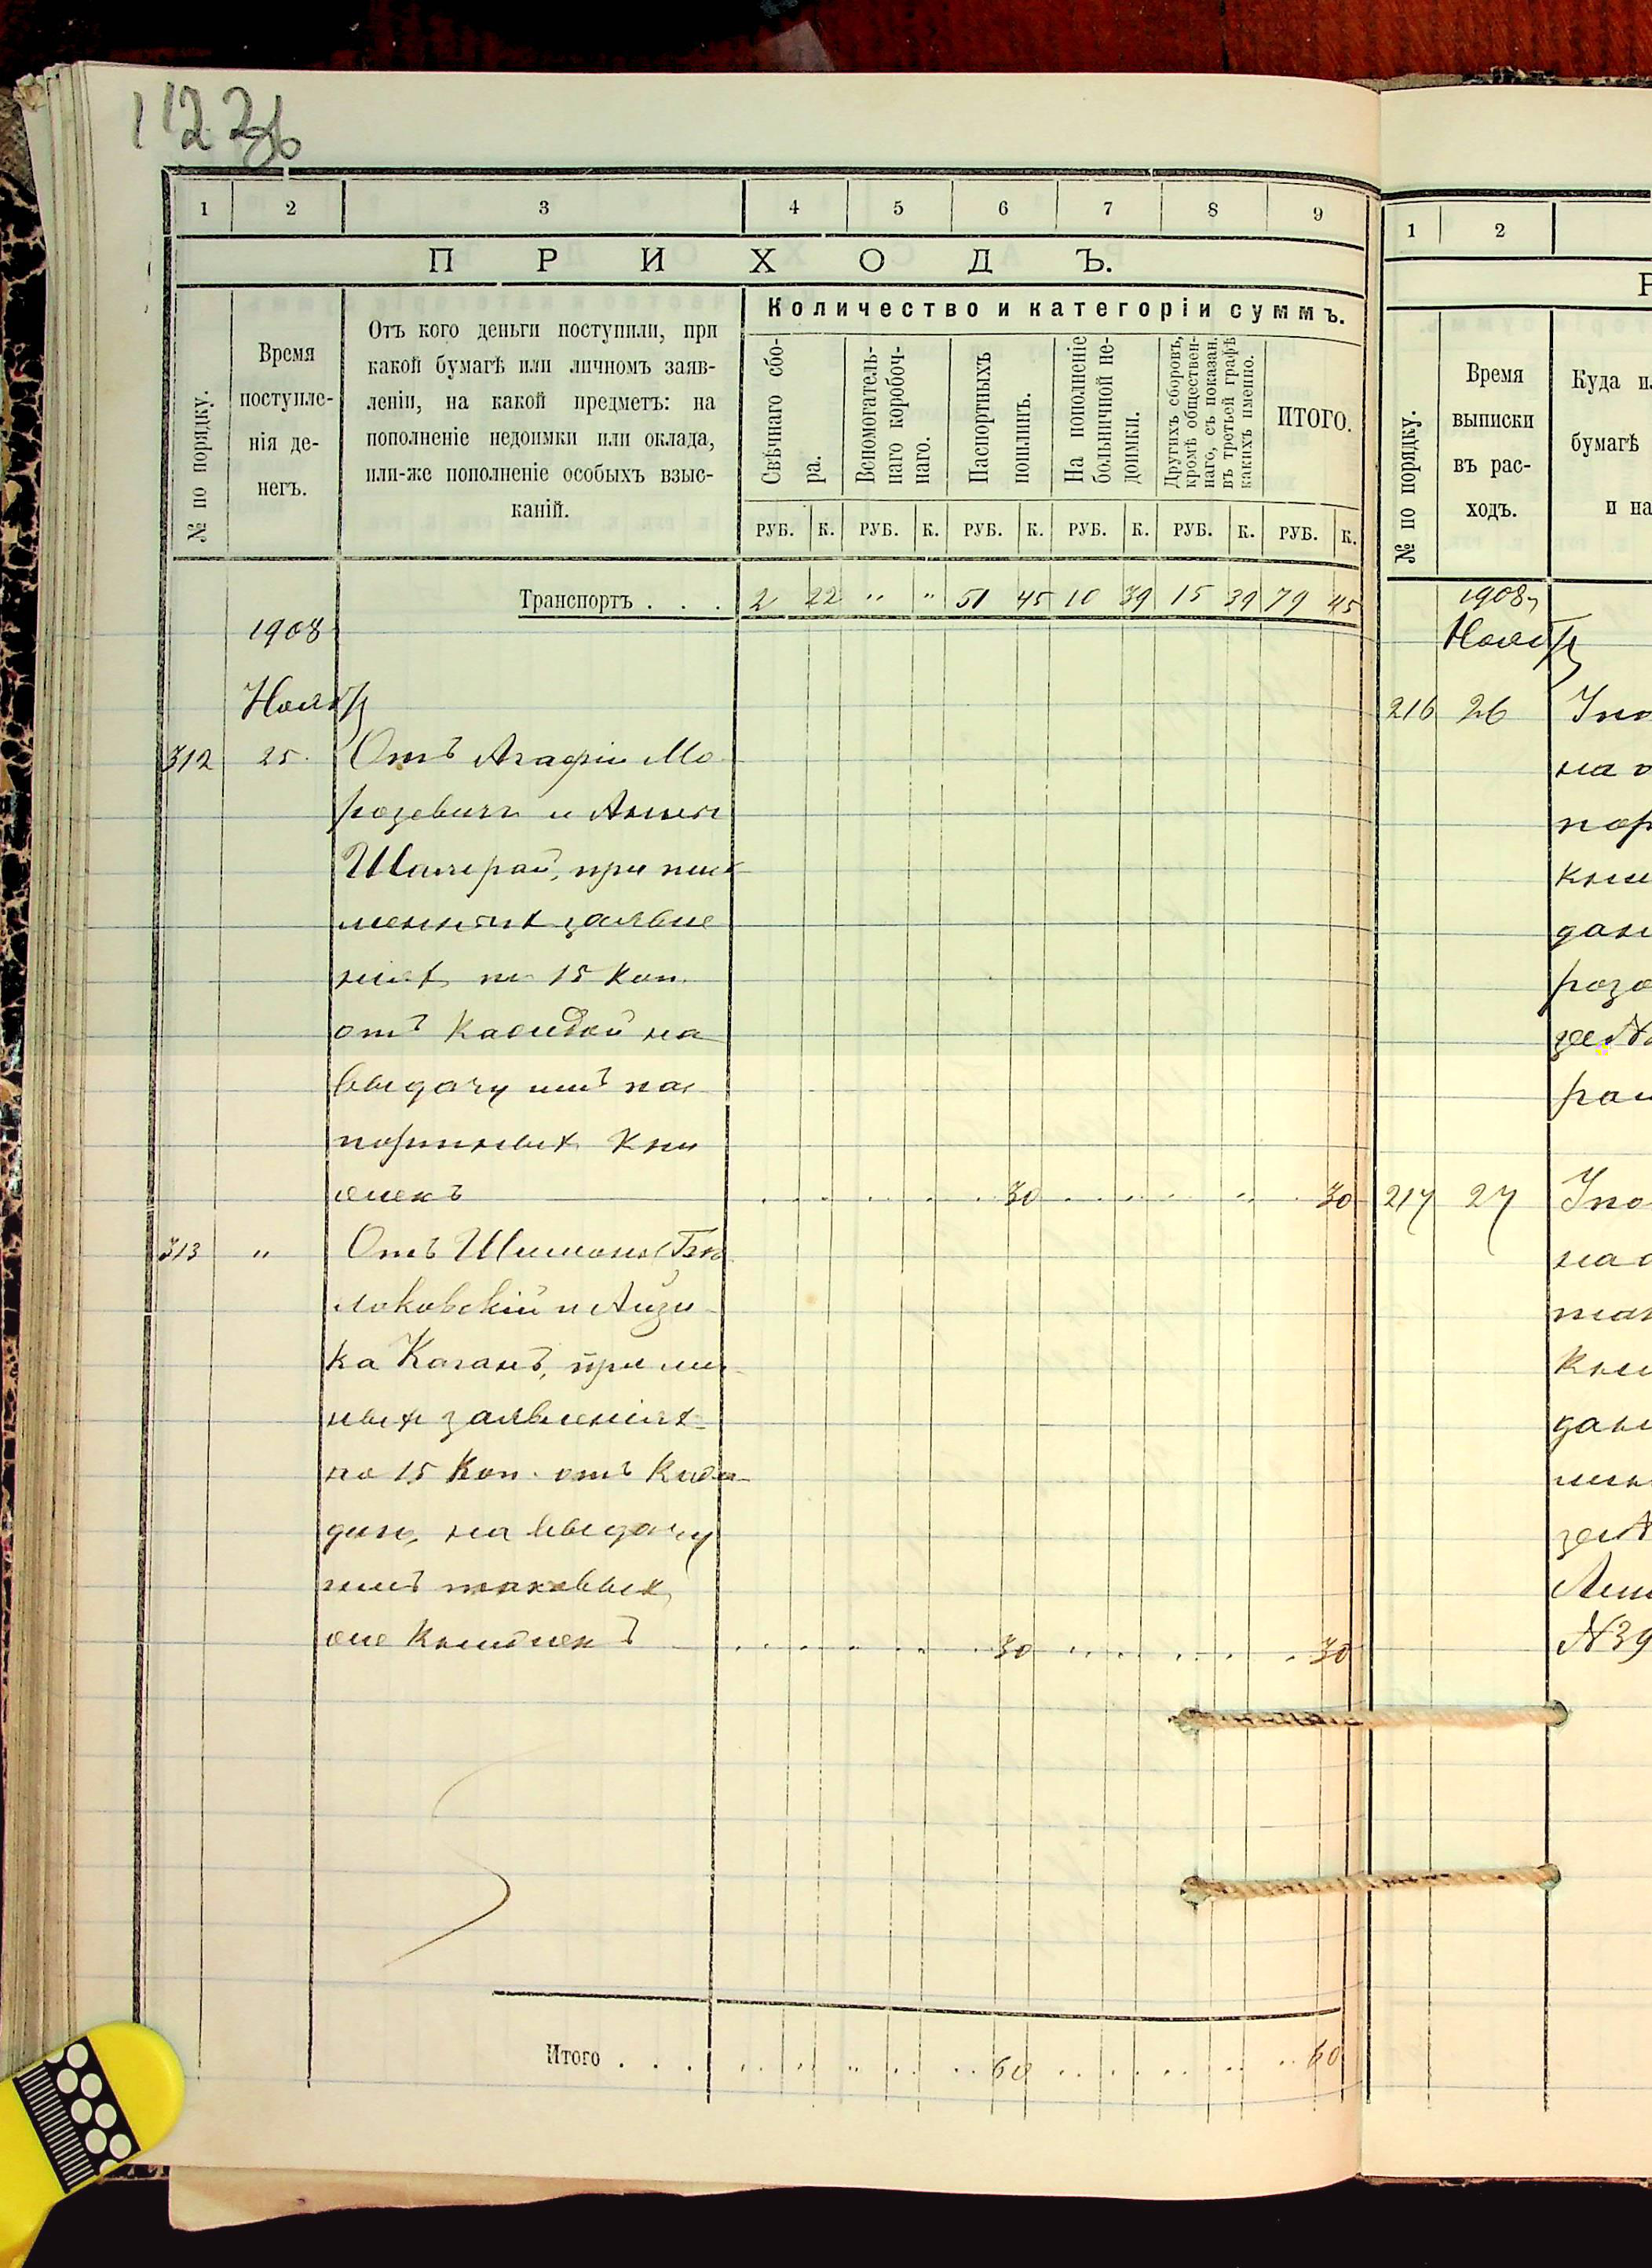 1 2 3 4 5 6 7 8 9
ПРИХОДЪ.
№ по порядку.
Время
поступле-
нія де-
негъ.
Отъ кого деньги поступили, при
какой бумагѣ или личномъ заяв-
леніи, на какой предметъ: на
пополненіе недоимки или оклада,
или-же пополненіе особыхъ взыс-
каній.
Количество и категоріи суммъ.
Свѣчнаго сбо-
ра.
Вспомогатель-
наго коробоч-
наго.
Паспортныхъ
пошлинъ.
На пополненіе
больничной не-
доимки.
Другихъ сборовъ,
кромѣ обществен-
наго, съ показан.
въ третьей графѣ
какихъ именно.
ИТОГО.
РУБ. К. РУБ. К. РУБ. К. РУБ. К. РУБ. К. РУБ. К.
Транспортъ . . . 2 22 " " 51 45 10 39 15 39 79 45
1908
Ноябр
312 25 Отъ Агафіи Мо
розевичъ и Анны
при пись
менныхъ заявле
ніях по 15 коп.
отъ каждой на
выдачу имъ пас
портныхъ кни
жекъ 30 30
313 " Отъ Шимона
локовскій и Айзи
ка Каганъ, при лич
ныхъ заявленіях
по 15 коп. отъ каж
даго, на выдачу
имъ таковыхъ
же книжекъ 30 30
Итого . . . 60 60
1 2
Р
№ по порядку.
Время
выписки
въ рас-
ходъ.
Куда и
бумагѣ
и на
1908
Ноябр
216 26
на
пор
кни
дан
розо
217 27
на
кни
дан
№39